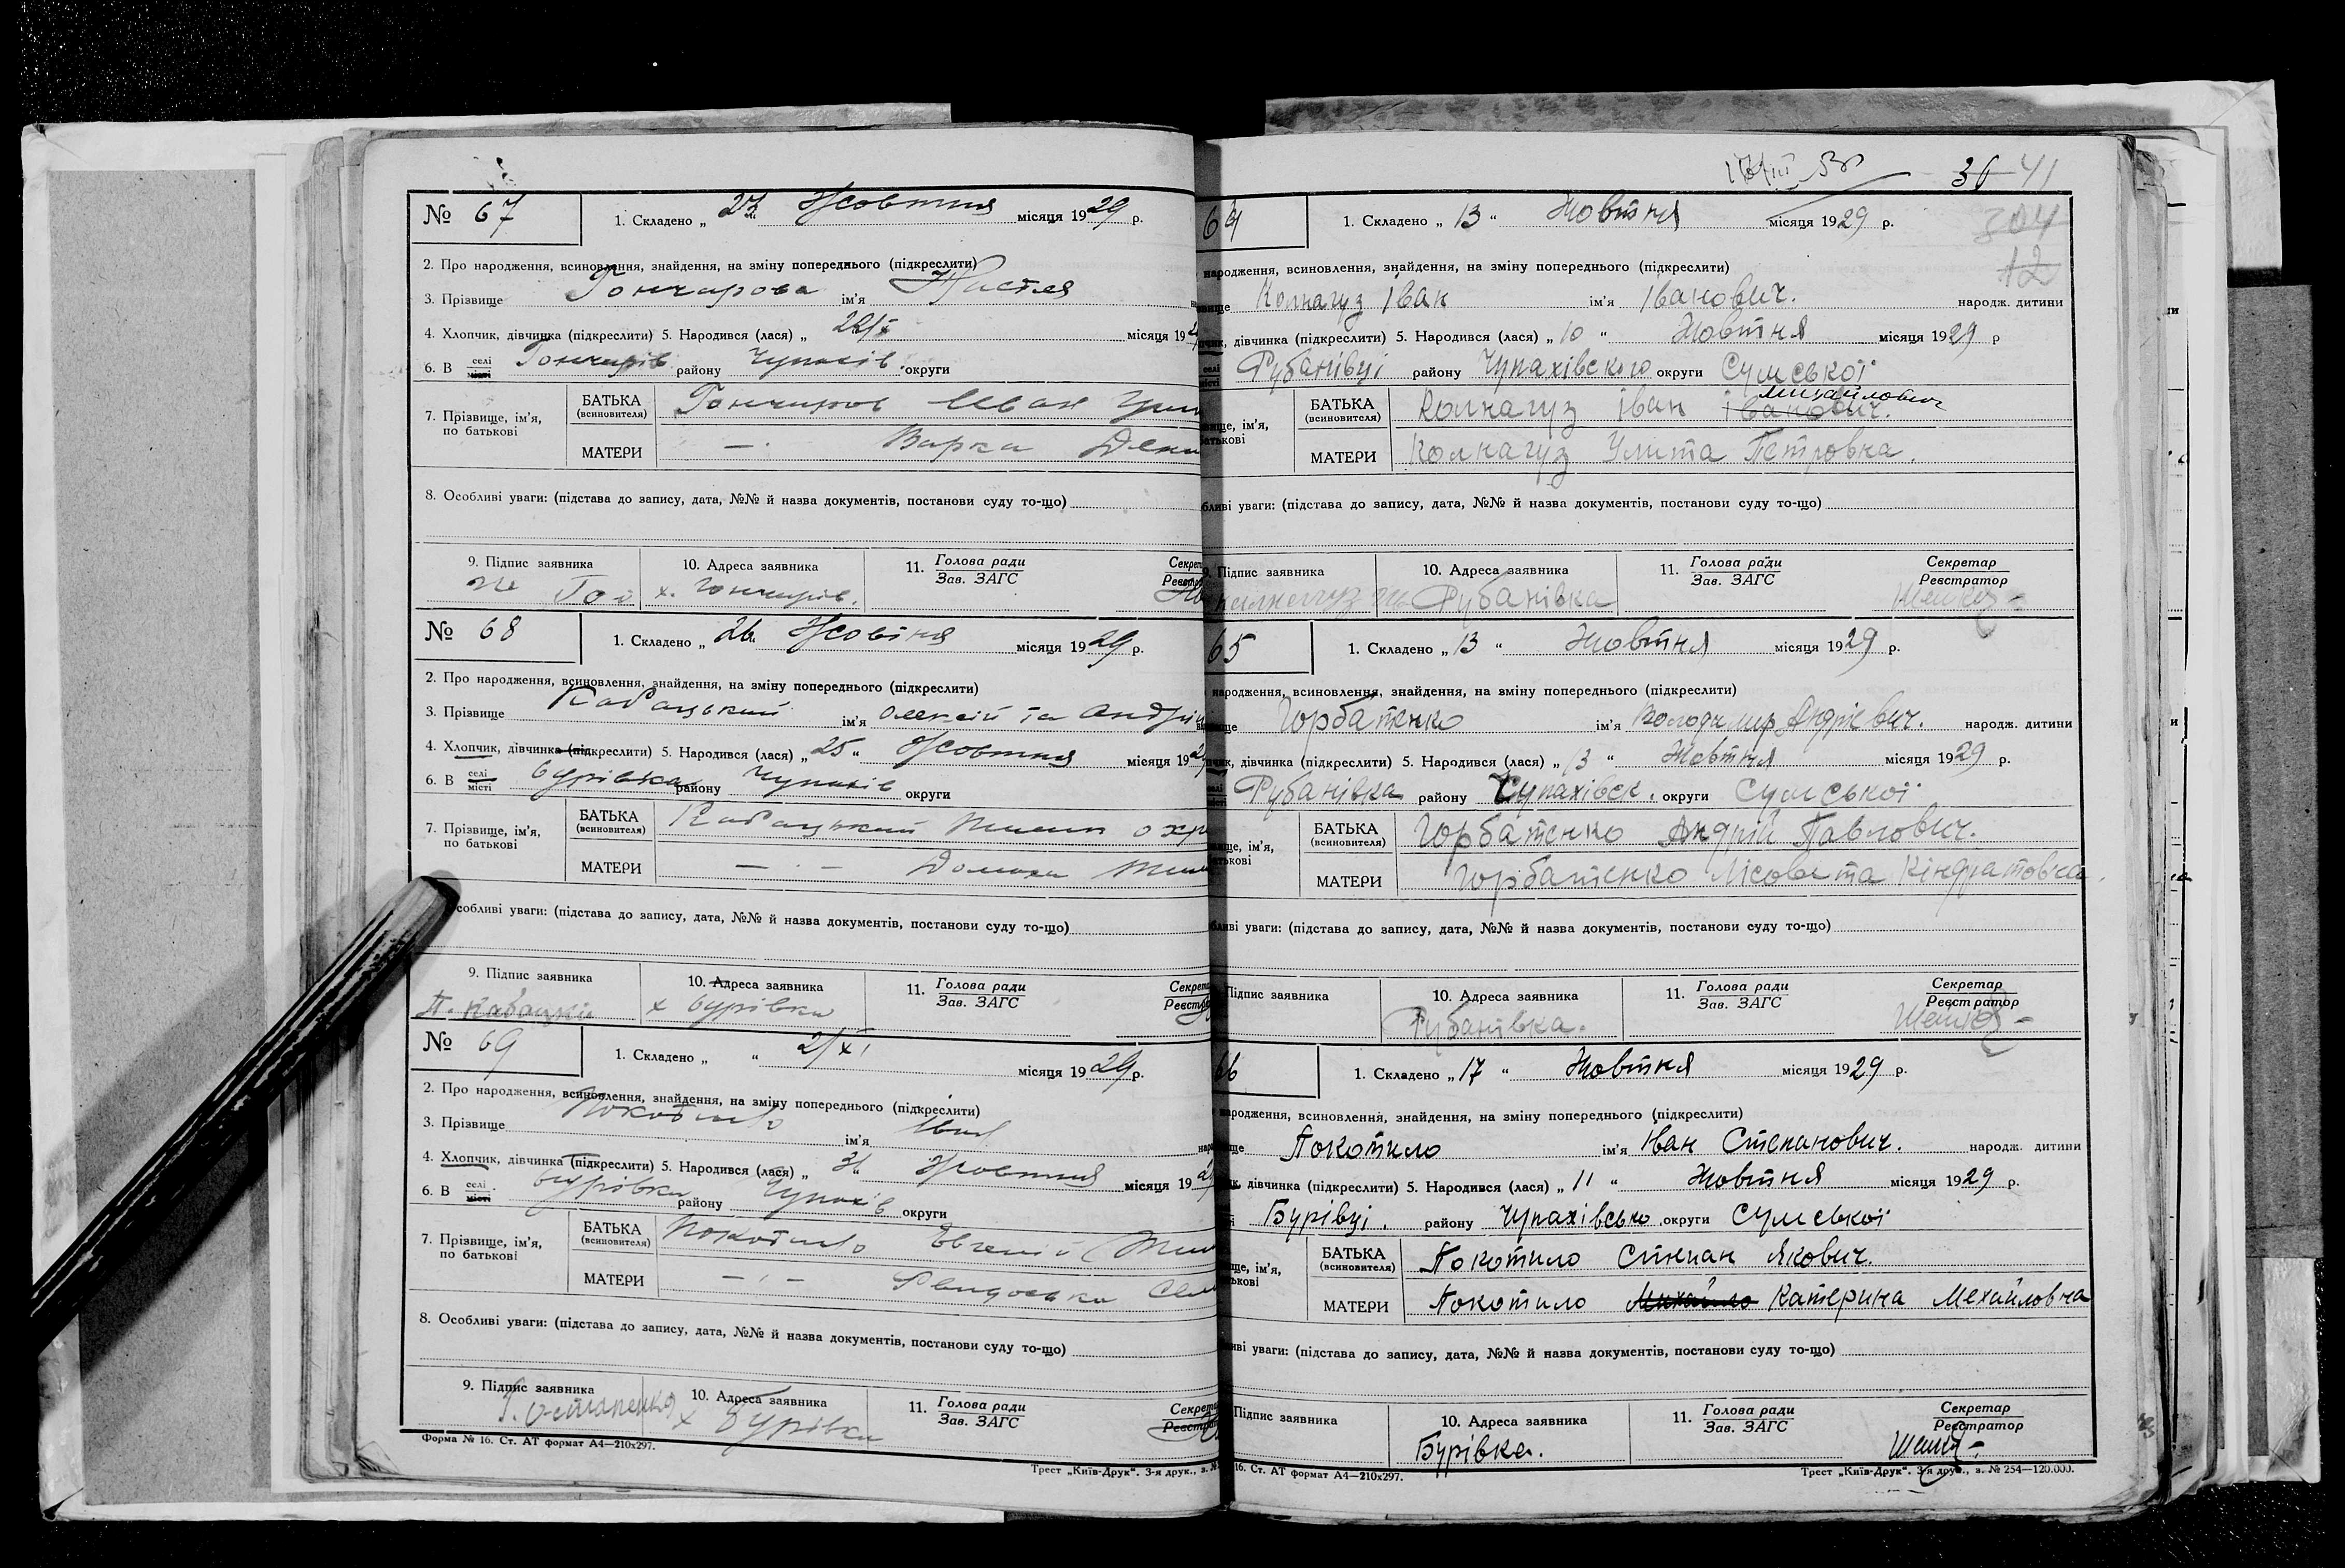 № 67
1. Складено „ 23 “ Жовтня місяця 1929 р.
2. Про народження, всиновлення, знайдення, на зміну попереднього (підкреслити)
3. Прізвище Гончарова ім'я Настя
4. Хлопчик, дівчинка (підкреслити) 5. Народився (лася) „ місяця 192
6. В селі місті Гончарів району Чупахів округи
7. Прізвище, ім'я, по батькові
БАТЬКА (всиновителя) Гончаров Іван
МАТЕРИ — Варка
8. Особливі уваги: (підстава до запису, дата, №№ й назва документів, постанови суду то-що)
9. Підпис заявника 10. Адреса заявника 11. Голова ради Зав. ЗАГС
х. Гончарів.
№ 68
1. Складено „ 26 “ Жовтня місяця 1929 р.
2. Про народження, всиновлення, знайдення, на зміну попереднього (підкреслити)
3. Прізвище Кабацький ім'я Олексій та Андрій
4. Хлопчик, дівчинка (підкреслити) 5. Народився (лася) „ 25 “ Жовтня місяця 192
6. В селі місті Бурівка району Чупахів округи
7. Прізвище, ім'я, по батькові
БАТЬКА (всиновителя) Кабацький
МАТЕРИ — · — Домаха
Особливі уваги: (підстава до запису, дата, №№ й назва документів, постанови суду то-що)
9. Підпис заявника 10. Адреса заявника 11. Голова ради Зав. ЗАГС
х Бурівка
№ 69
1. Складено „ “ 2/XI місяця 1929 р.
2. Про народження, всиновлення, знайдення, на зміну попереднього (підкреслити)
3. Прізвище Покотило ім'я Іван
4. Хлопчик, дівчинка (підкреслити) 5. Народився (лася) „ Жовтня місяця 192
6. В селі місті Бурівка району Чупахів округи
7. Прізвище, ім'я, по батькові
БАТЬКА (всиновителя) Покотило Евгеній
МАТЕРИ — · —
8. Особливі уваги: (підстава до запису, дата, №№ й назва документів, постанови суду то-що)
9. Підпис заявника 10. Адреса заявника 11. Голова ради Зав. ЗАГС
Остапенко х Бурівка
Форма № 16. Ст. АТ формат А4—210х297.
Трест „Київ-Друк“. 3-я друк., з. №
36 41
304
12
64
1. Складено „ 13 “ Жовтня місяця 1929 р.
народження, всиновлення, знайдення, на зміну попереднього (підкреслити)
Колнагуз Іван ім'я Іванович. народж. дитини
дівчинка (підкреслити) 5. Народився (лася) „ 10 “ Жовтня місяця 1929 р
Рубанівці району Чупахівского округи Сумської
БАТЬКА (всиновителя) Колнагуз Іван Іванович. Михайлович
МАТЕРИ Колнагуз Улита Петровна.
уваги: (підстава до запису, дата, №№ й назва документів, постанови суду то-що)
9. Підпис заявника 10. Адреса заявника 11. Голова ради Зав. ЗАГС Секретар Реєстратор
Рубанівка
65
1. Складено „ 13 “ Жовтня місяця 1929 р.
народження, всиновлення, знайдення, на зміну попереднього (підкреслити)
Горбатенко ім'я Володимир Андрієвич. народж. дитини
дівчинка (підкреслити) 5. Народився (лася) „ 13 “ Жовтня місяця 1929 р.
Рубанівка району Чупахівск. округи Сумської
БАТЬКА (всиновителя) Горбатенко Андрій Павлович.
МАТЕРИ Горбатенко Лісовета Кіндратовна.
уваги: (підстава до запису, дата, №№ й назва документів, постанови суду то-що)
Підпис заявника 10. Адреса заявника 11. Голова ради Зав. ЗАГС Секретар Реєстратор
Рубанівка.
66
1. Складено „ 17 “ Жовтня місяця 1929 р.
народження, всиновлення, знайдення, на зміну попереднього (підкреслити)
Покотило ім'я Іван Степанович. народж. дитини
дівчинка (підкреслити) 5. Народився (лася) „ 11 “ Жовтня місяця 1929 р.
Бурівці. району Чупахівсько округи Сумської
БАТЬКА (всиновителя) Покотило Степан Якович.
МАТЕРИ Покотило Михайло Катерина Мехайловна
уваги: (підстава до запису, дата, №№ й назва документів, постанови суду то-що)
Підпис заявника 10. Адреса заявника 11. Голова ради Зав. ЗАГС Секретар Реєстратор
Бурівка.
16. Ст. АТ формат А4—210х297.
Трест „Київ-Друк“. 3-я друк., з. № 254—120.000.